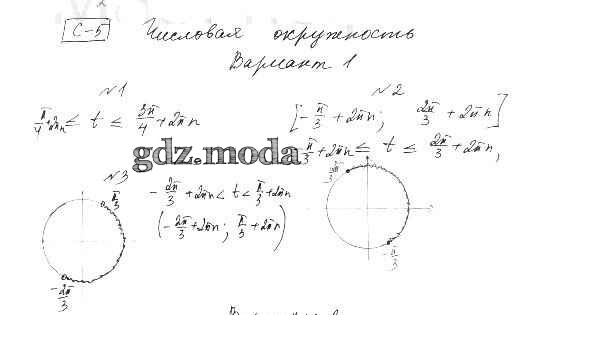 С-5 Числовая окружность
Вариант 1
№1
π/4+2πn ≤ t ≤ 3π/4 + 2πn
№2
[-π/3 + 2πn; 2π/3 + 2πn]
-π/3 + 2πn ≤ t ≤ 2π/3 + 2πn,
gdz.moda
№3
-2π/3 + 2πn < t < π/3 + 2πn
(-2π/3 + 2πn; π/3 + 2πn)
π/3
-2π/3
2π/3
-π/3